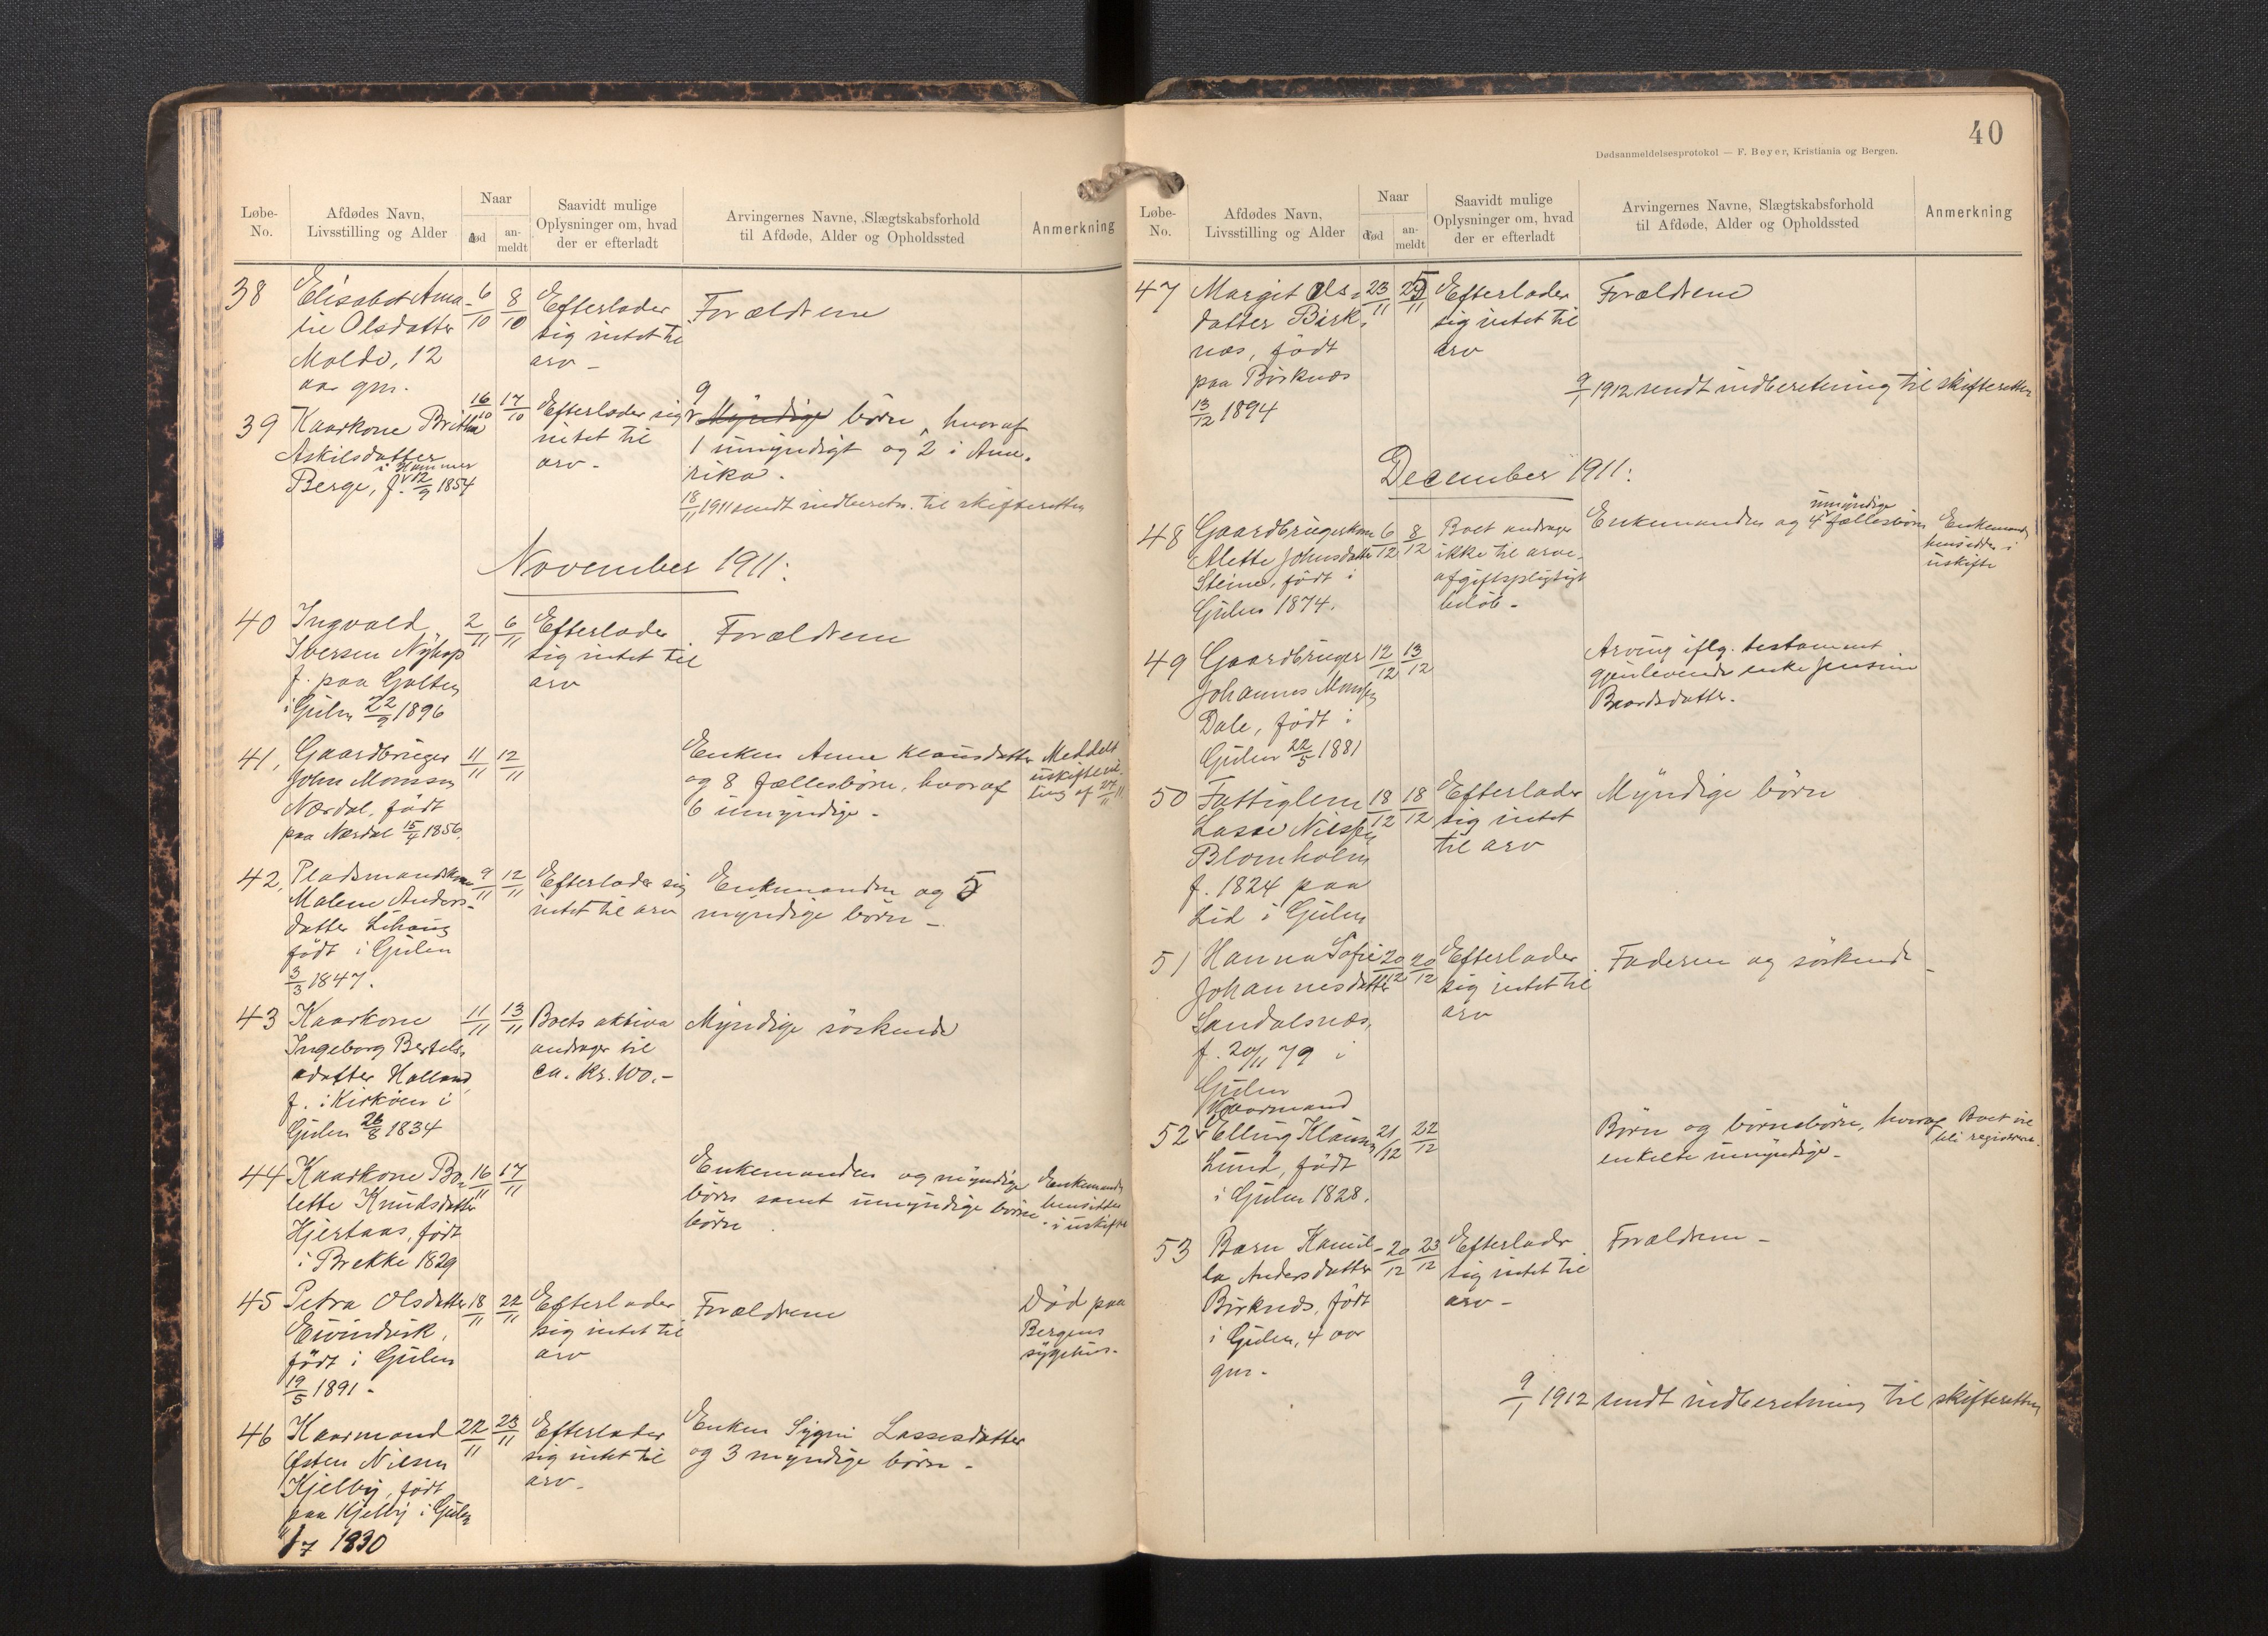 Løbe-No.
Afdødes Navn, Livsstilling og Alder
Naar
død
an-meldt
Saavidt mulige Oplysninger om, hvad der er efterladt
Arvingernes Navne, Slægtskabsforhold til Afdøde, Alder og Opholdssted
Anmerkning
38 Elisabet Ama- 6/10 8/10 Efterlader Forældrene
lie Olsdatter sig intet til
Molde, 12 arv -
aar gm.
39 Kaarkone Britha 16/10 17/10 Efterlader sig 9 Myndige børn, hvoraf
Askilsdatter intet til 1 umyndigt og 2 i Ame-
i Hammer arv - rika.
Berge, f. 12/9 1854
18/11 1911 sendt indberetn. til skifteretten
November 1911:
40 Ingvald 2/11 6/11 Efterlader Forældrene
Iversen Nyhop sig intet til
f. paa Galten arv
i Gulen 22/9 1896
41, Gaardbruger 11/11 12/11 Enken Anne Klausdatter Meddelt
John Monsen og 8 fællesbörn, hvoraf uskiftevil-
Nærdal, født 6 umyndige - ling af 27/11 11.
paa Nærdal 15/4 1856.
42, Pladsmandskone 9/11 12/11 Efterlader sig Enkemanden og 5
Malene Anders- intet til arv myndige börn -
datter Lihaug
født i Gulen
3/3 1847.
43 Kaarkone 11/11 13/11 Boets aktiva Myndige söskende
Ingeborg Bertels- andrager til
datter Halland, ca. kr. 100.-
f. i Kirköen i
Gulen 26/8 1834
44 Kaarkone Bo- 16/11 17/11 Enkemanden og myndige Enkemanden
lette Knudsdatter börn samt umyndige börne- hensidder
Hjertaas, født börn i uskifte
i Brekke 1829
45 Petra Olsdatter 18/11 22/11 Efterlader Forældrene Död paa
Eivindvik, sig intet til Bergens
født i Gulen arv sygehus.
19/5 1891 -
46 Kaarmand 22/11 23/11 Efterlader Enken Sygni Lassesdatter
Østen Nilsen sig intet til og 3 myndige börn -
Kjelby, født arv -
paa Kjelby i Gulen
1/7 1830
40
Dødsanmeldelsesprotokol — F. Beyer, Kristiania og Bergen.
Løbe-No.
Afdødes Navn, Livsstilling og Alder
Naar
død
an-meldt
Saavidt mulige Oplysninger om, hvad der er efterladt
Arvingernes Navne, Slægtskabsforhold til Afdøde, Alder og Opholdssted
Anmerkning
47 Margit Ols- 23/11 25/11 Efterlader Forældrene
datter Birk- sig intet til
nes, födt arv
paa Birknes
13/12 1894
9/1 1912 sendt indberetning til skifteretten
December 1911:
48 Gaardbrugerkone 6/12 8/12 Boet andrager Enkemanden og 4 umyndige fællesbörn Enkemanden
Alette Johnsdatter ikke til arve- hensidder i
Steine, født i afgiftspligtigt uskifte
Gulen 1874. belöb -
49 Gaardbruger 12/12 13/12 Arving iflg. testament
Johannes Monsen gjenlevende enke Jensine
Dale, födt i Baardsdatter.
Gulen 22/5 1881
50 Fattiglem 18/12 18/12 Efterlader Myndige börn
Lasse Nilssen sig intet
Blomholm til arv
f. 1824 paa
Lid i Gulen
51 Hanna Sofie 20/12 20/12 Efterlader Faderen og söskende -
Johannesdatter sig intet til
Sandalsnes, arv
f. 20/11 79 i
Gulen
52 Kaarmand Elling Klausen 21/12 22/12 Börn og börnebörn, hvoraf Boet vil
Lund, födt enkelte umyndige - bli registrere.
i Gulen 1828.
53 Barn Kamil- 20/12 23/12 Efterlader Forældrene -
la Andersdatter sig intet til
Birknes, født arv -
i Gulen, 4 aar
gm -
9/1 1912 sendt indberetning til skifteretten